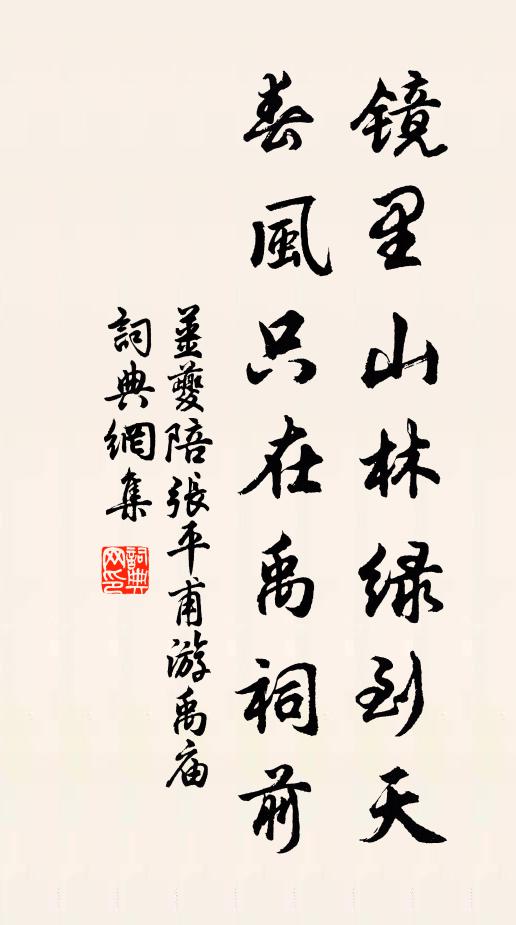 镜里山林绿到天
春風只在禹祠前
姜夔陪張平甫游禹庙
詞典網集
詞典网印